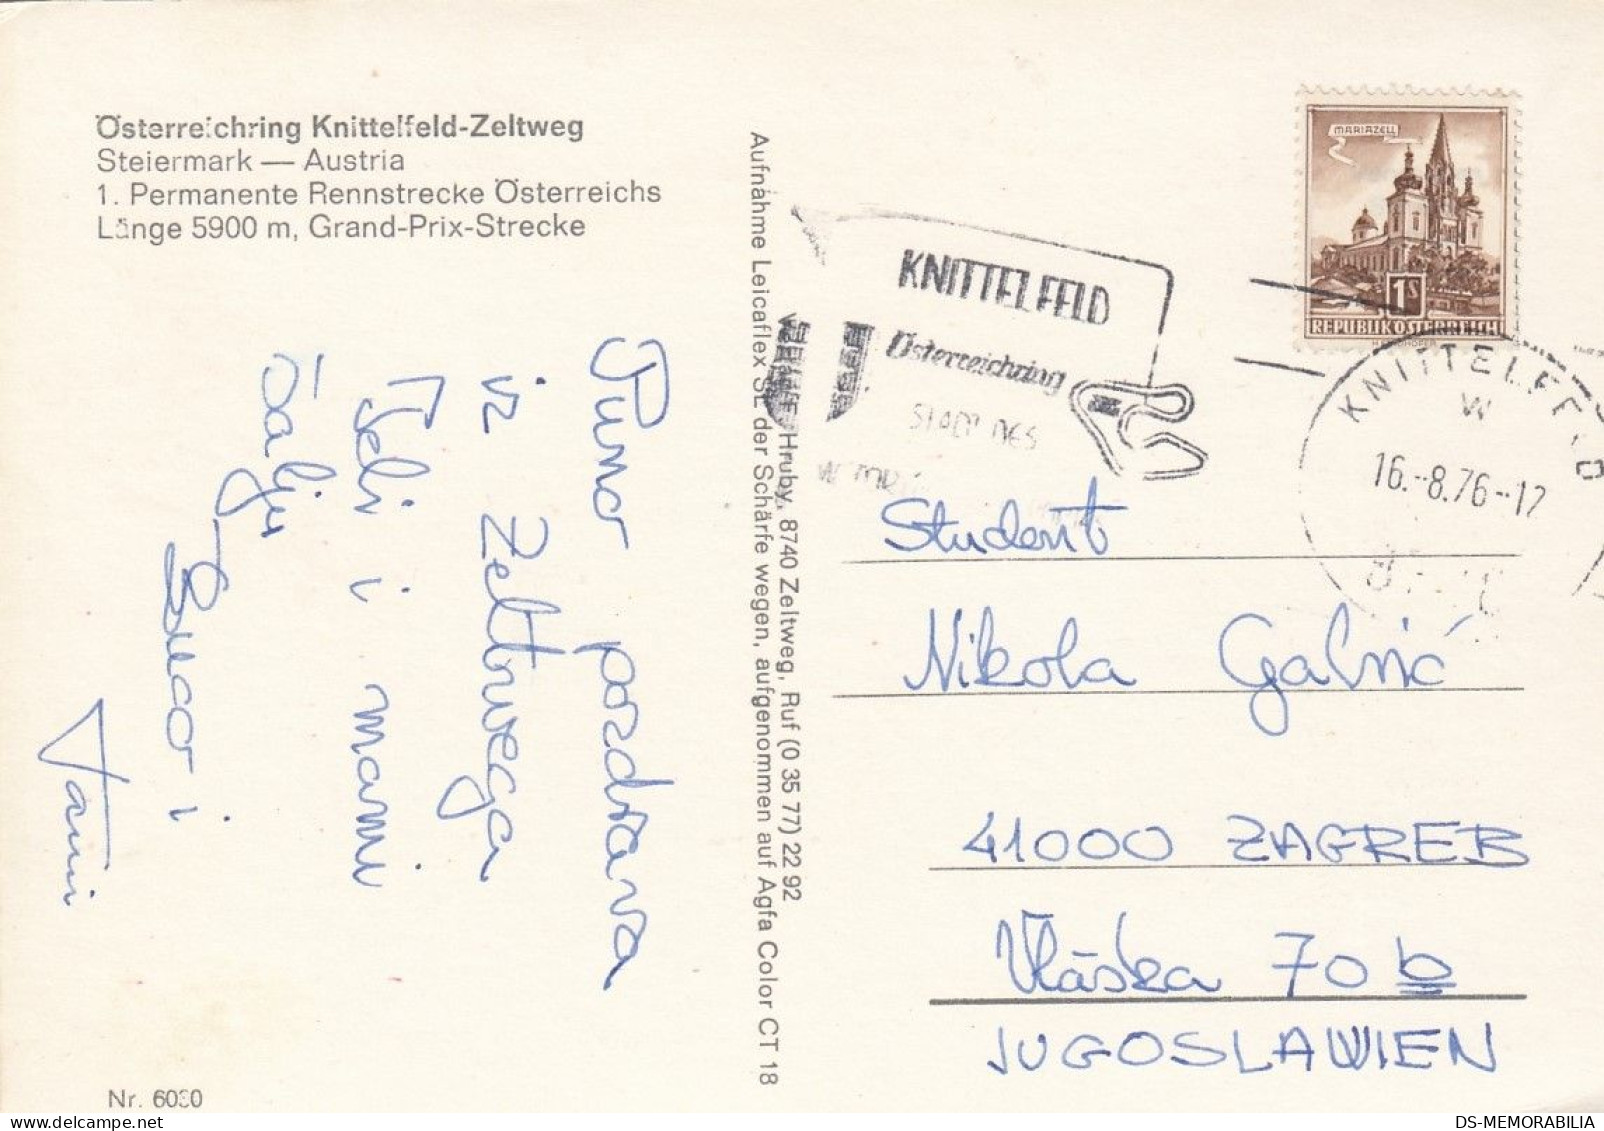 Österreichring Knittelfeld-Zeltweg
Steiermark — Austria
1. Permanente Rennstrecke Österreichs
Länge 5900 m, Grand-Prix-Strecke
Puno pozdrava
iz Zeltwega
Seki i mami
šalju
Buco i
Tanii
Nr. 6030
Hruby, 8740 Zeltweg, Ruf (0 35 77) 22 92
Aufnahme Leicaflex SL der Schärfe wegen, aufgenommen auf Agfa Color CT 18
KNITTELFELD
Österreichring
STADT DES
MARIAZELL
1S
REPUBLIK ÖSTERREICH
KNITTELFELD
W
16.-8.76-12
Student
Nikola Galnić
41000 ZAGREB
Vlaška 70 b
JUGOSLAWIEN
DS-MEMORABILIA